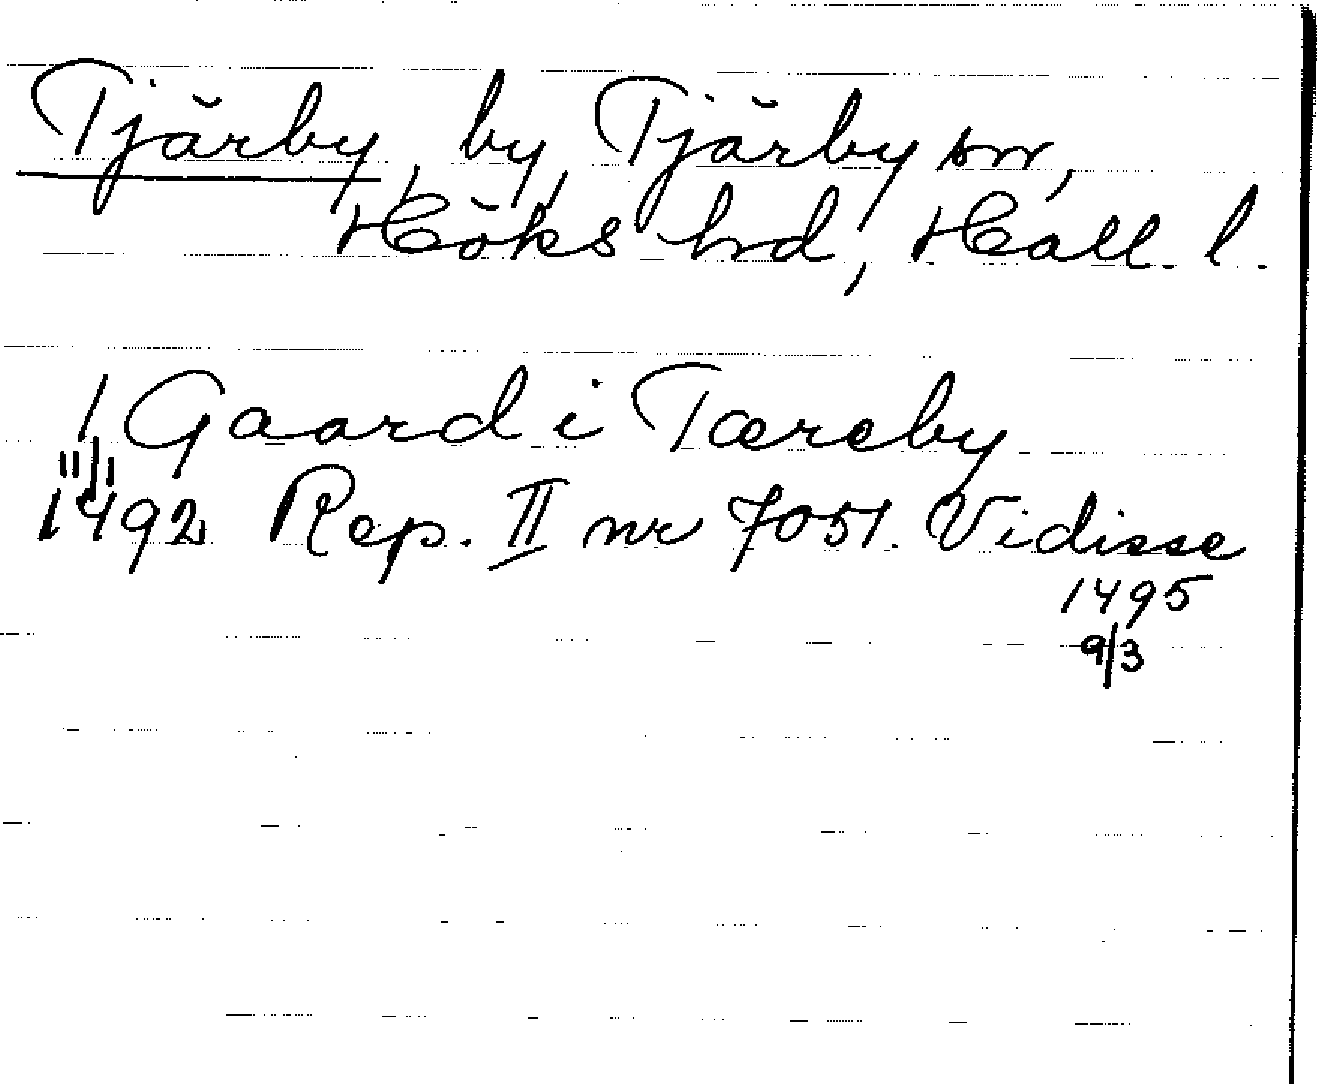 Tjärby, by, Tjärby sn,
Höks hrd, Hall. l.
1 Gaard i Tæreby
11/1
1492 Rep. II nr 7051. Vidisse
1495
9/3